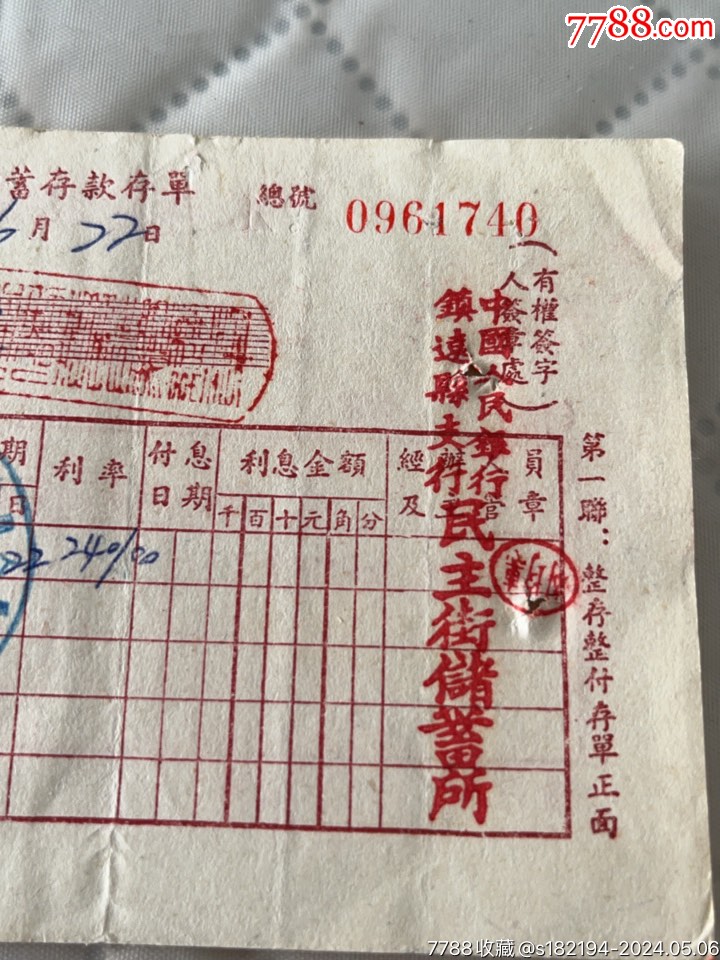 7788.com
蓄存款存單
總號 0961740
6月22日
(有權簽字
人簽章處)
中國人民銀行
鎮遠縣支行
民主街儲蓄所
期 利率 付息 利息金額 經 員
日 日期 千百十元角分 及 章
22 240/00
第一聯：整存整付存單正面
7788收藏@s182194-2024.05.06